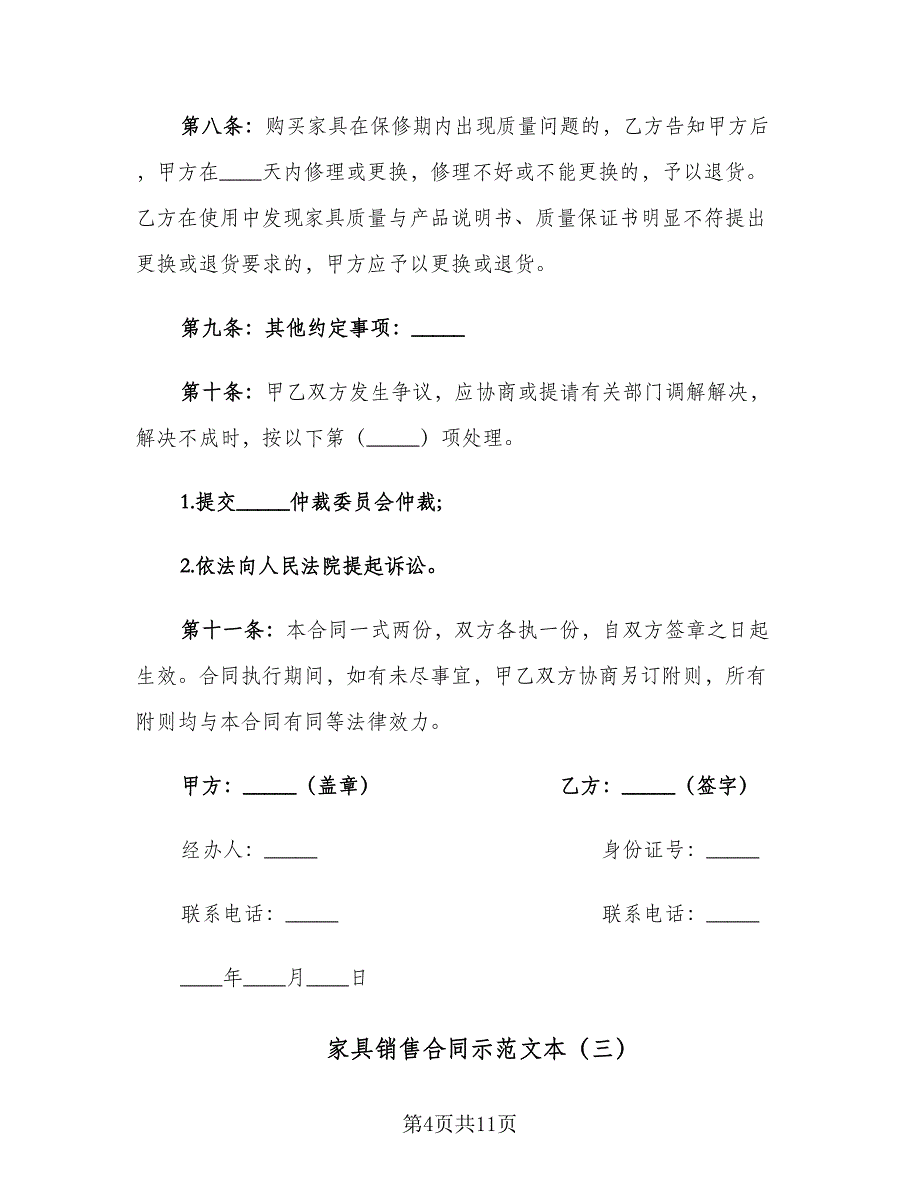 第八条：购买家具在保修期内出现质量问题的，乙方告知甲方后
，甲方在____天内修理或更换，修理不好或不能更换的，予以退货。
乙方在使用中发现家具质量与产品说明书、质量保证书明显不符提出
更换或退货要求的，甲方应予以更换或退货。
第九条：其他约定事项：_____
第十条：甲乙双方发生争议，应协商或提请有关部门调解解决，
解决不成时，按以下第（_____）项处理。
1.提交_____仲裁委员会仲裁;
2.依法向人民法院提起诉讼。
第十一条：本合同一式两份，双方各执一份，自双方签章之日起
生效。合同执行期间，如有未尽事宜，甲乙双方协商另订附则，所有
附则均与本合同有同等法律效力。
甲方：_____（盖章） 乙方：_____（签字）
经办人：_____ 身份证号：_____
联系电话：_____ 联系电话：_____
____年____月____日
家具销售合同示范文本（三）
第4页共11页